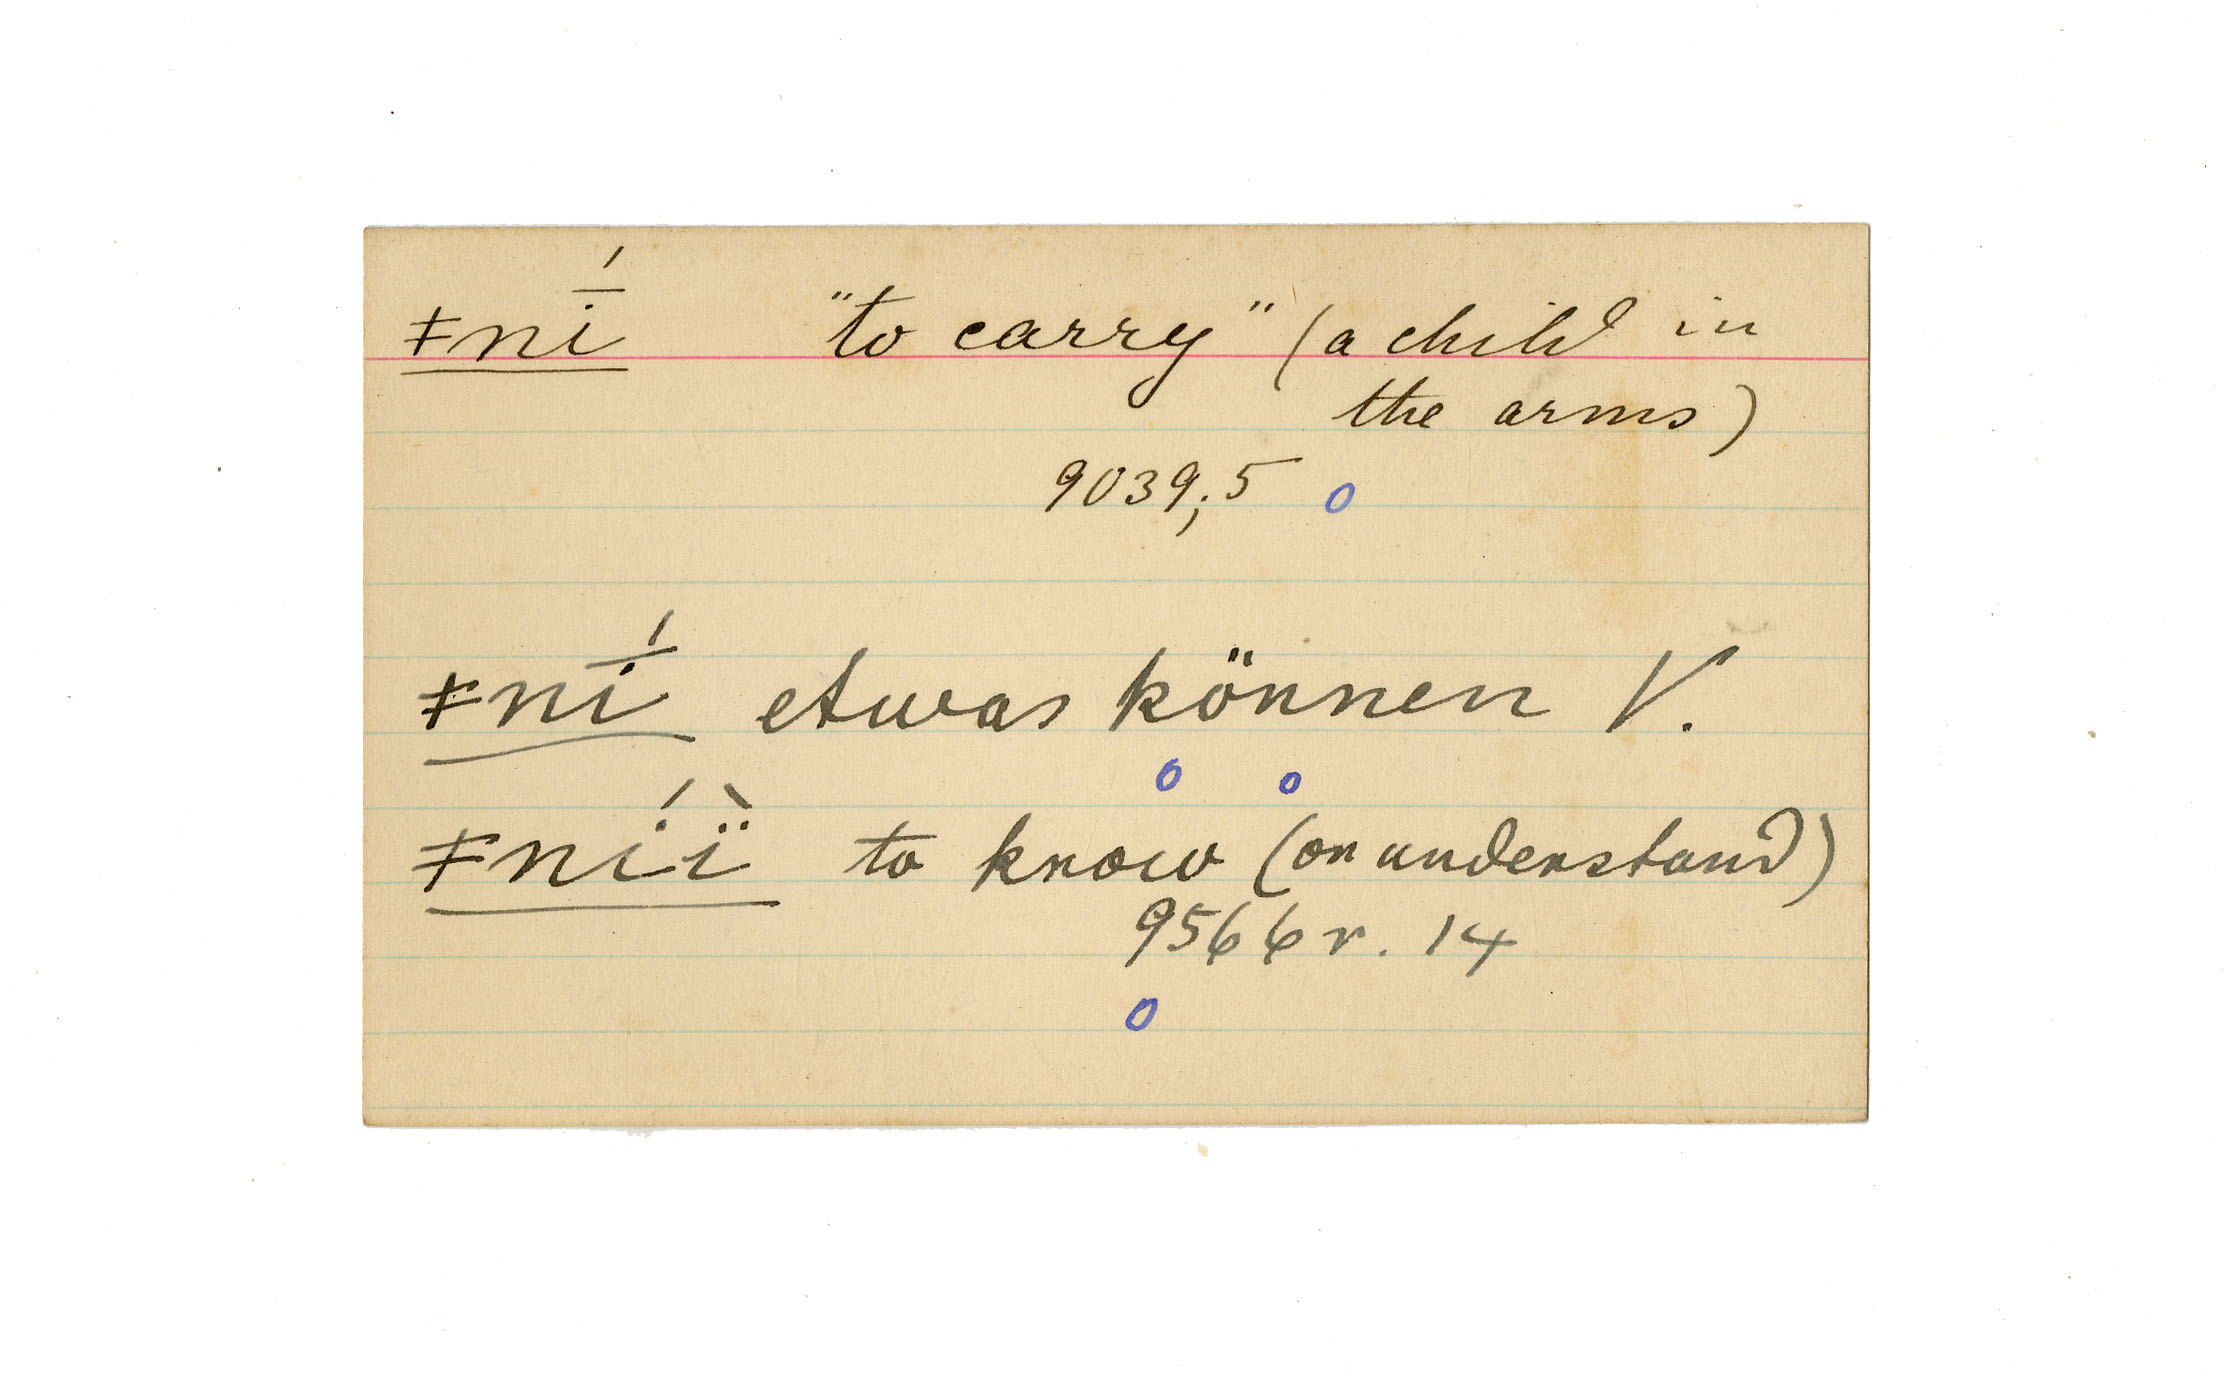 ǂnī́ "to carry" (a child in
the arms)
9039;5 o
ǂnī́ etwas können V.
o o
ǂníï̀ to know (or understand)
9566 r. 14
o